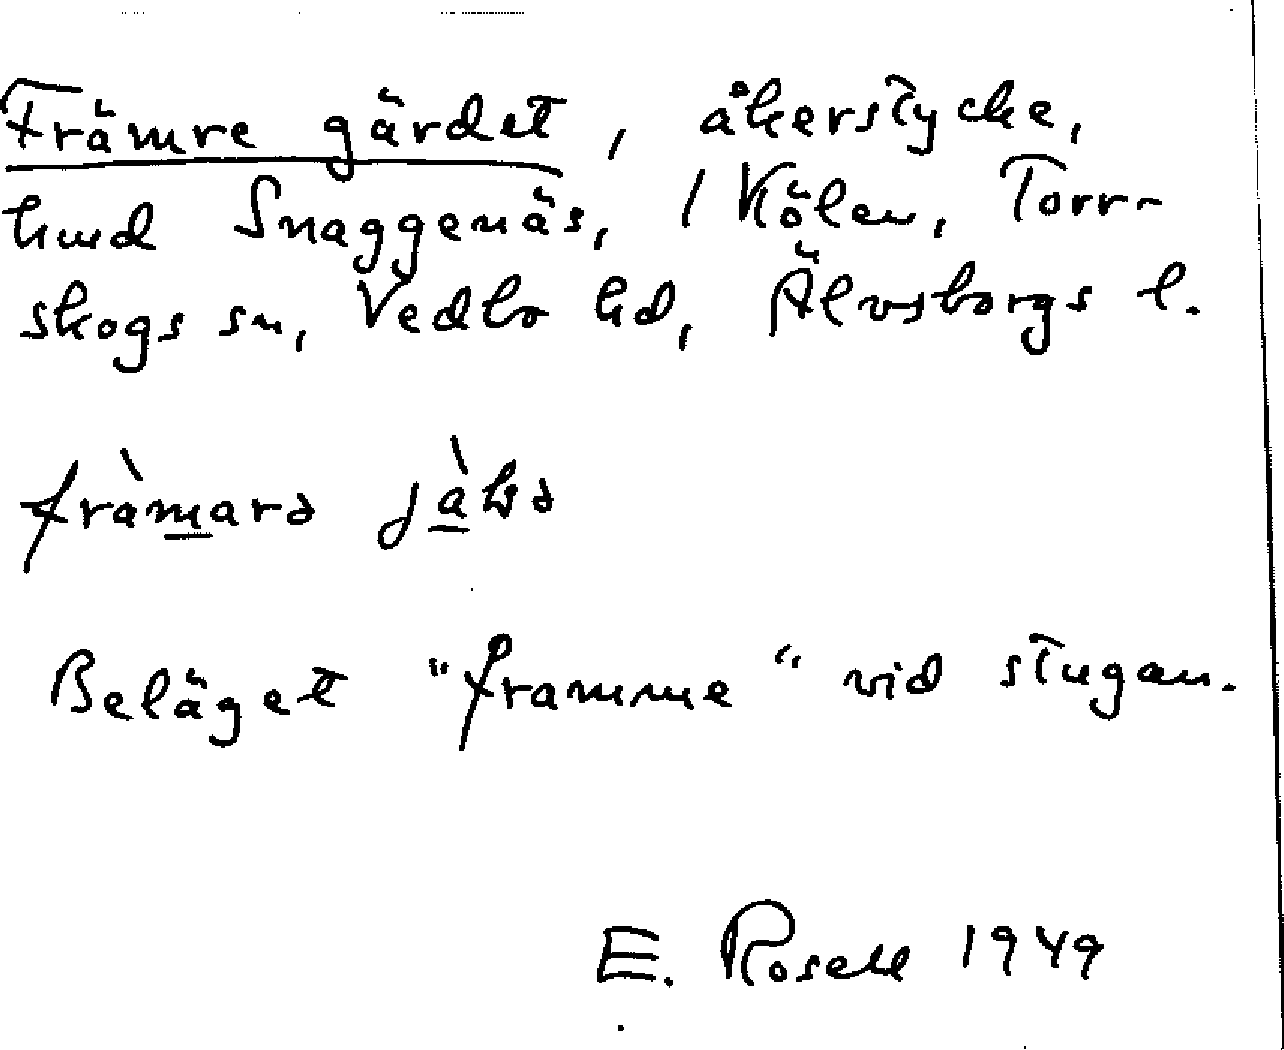 Främre gärdet, åkerstycke,
hmd Snaggenäs, 1 Kölen, Torr-
skogs sn, Vedbo hd, Älvsborgs l.
fràmarə
Beläget "framme" vid stugan.
E. Rosell 1949